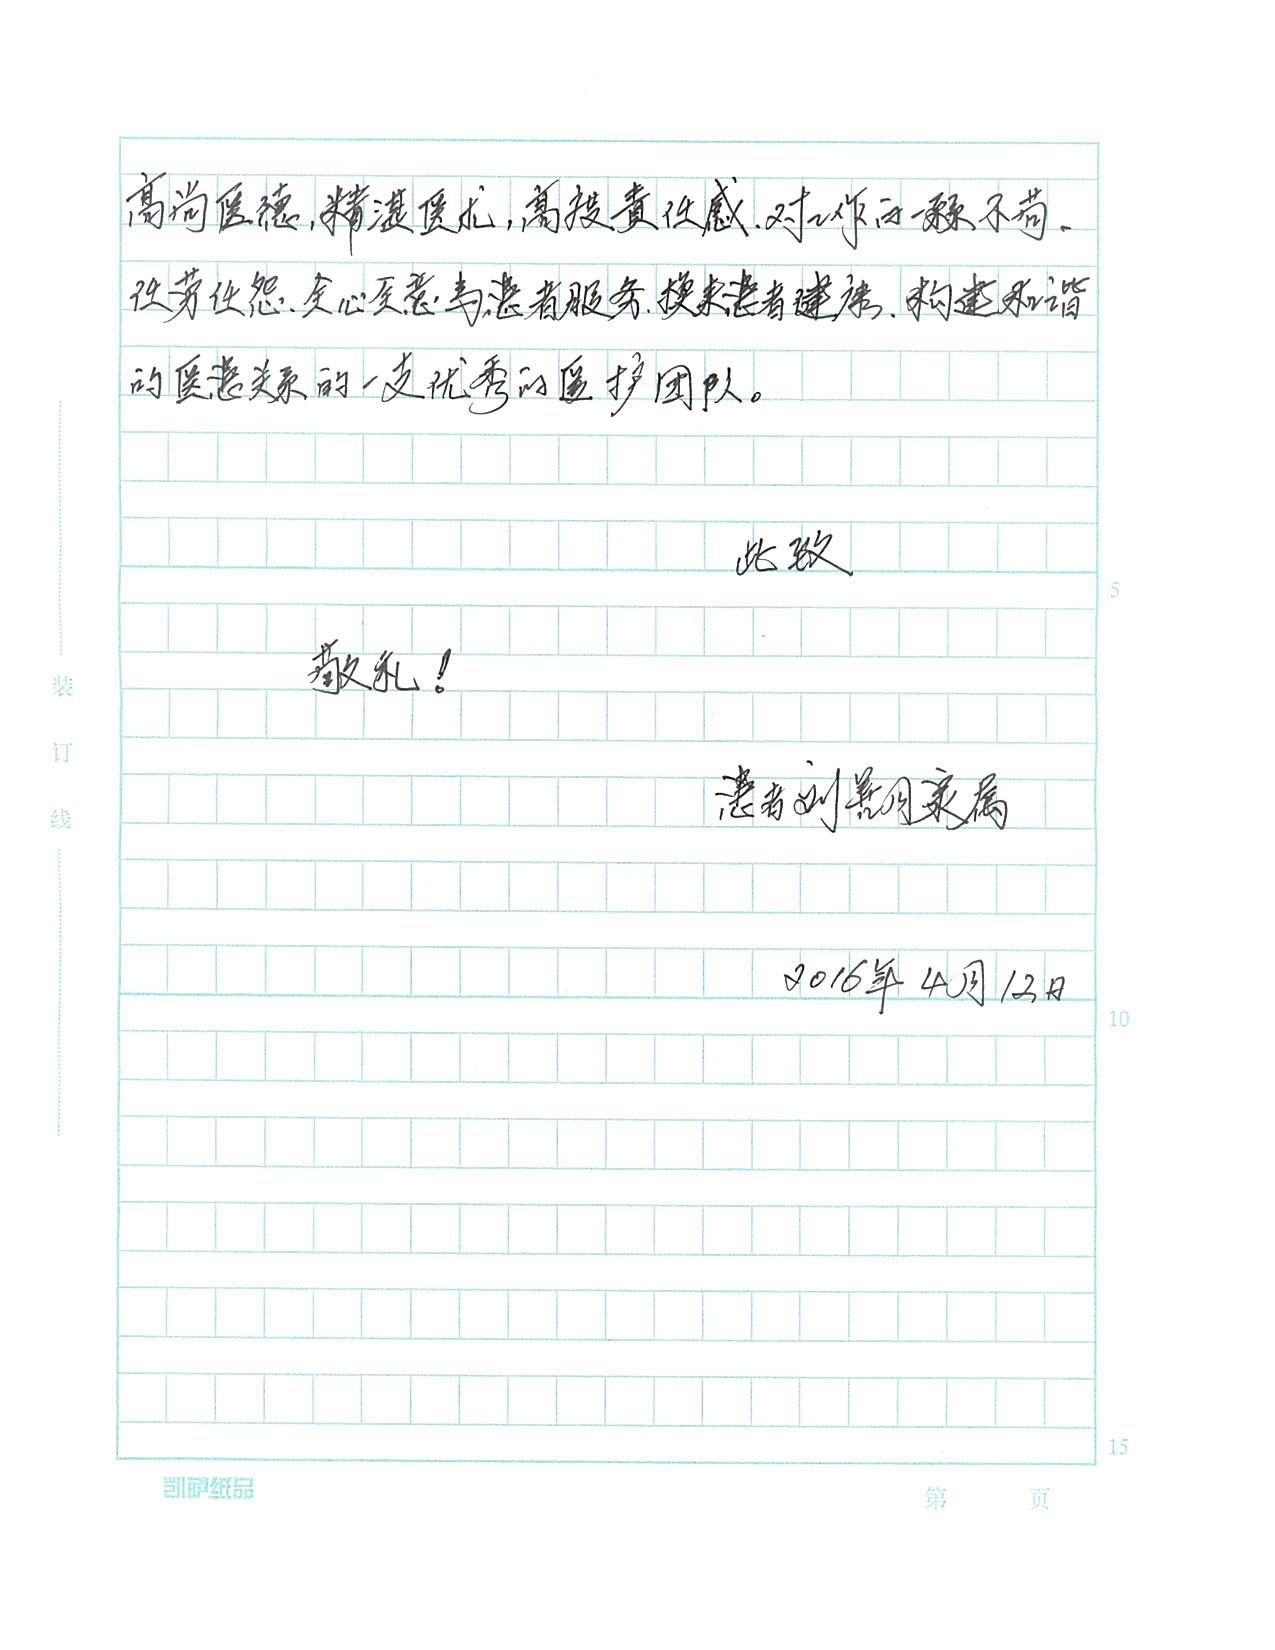 高尚医德，精湛医术，高投责任感、对工作的一丝不苟、
任劳任怨、全心至意为患者服务、换来患者建康、构建和谐
的医患关系的一支优秀的医护团队。
此致
5
敬礼！
装
订
线
患者刘善月家属
2016年4月12日
10
15
纸品
第 页